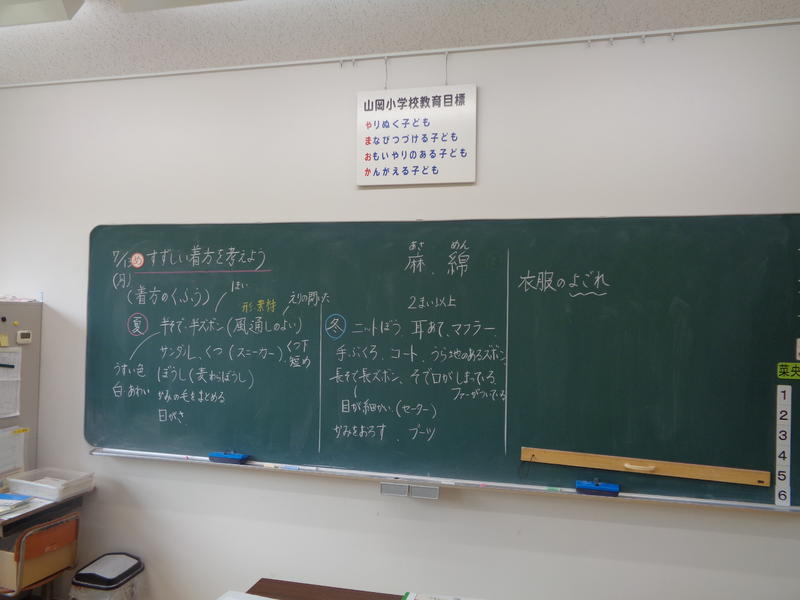 山岡小学校教育目標
やりぬく子ども
まなびつづける子ども
おもいやりのある子ども
かんがえる子ども
め すずしい着方を考えよう
(月)
(着方のくふう)
形・素材
えりの開いた
夏 半そで・半ズボン(風通しのよい)
サンダル、くつ(スニーカー)、くつ下
短め
うすい色
白・あわい
ぼうし(麦わらぼうし)
かみの毛をまとめる
日がさ
あさ めん
麻、綿
2まい以上
冬 ニットぼう、耳あて、マフラー
手ぶくろ、コート、うら地のあるズボン
長そで長ズボン、そで口がしまっている
ファーがついている
目が細かい(セーター)
かみをおろす、ブーツ
衣服のよごれ
菜央
1
2
3
4
5
6